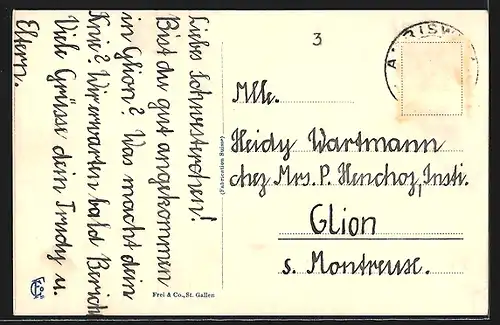 Liebes Schwesterchen!
Bist du gut angekommen
in Glion? Was macht dein
Knie? Wir erwarten bald Bericht
Viele Grüsse dein Trudy u.
Eltern.
3
Mlle.
Heidy Wartmann
chez Mrs. P. Henchoz, Insti.
Glion
s. Montreuse.
(Fabrication Suisse)
Frei & Co., St. Gallen